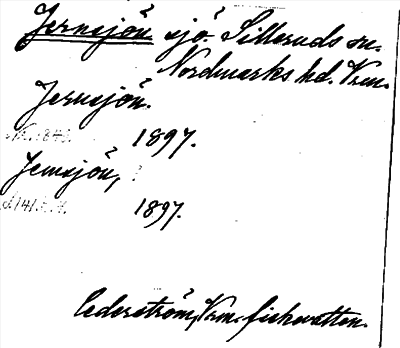 Jernsjön sjö. Silleruds sn.
Nordmarks hd. Vrm.
Jernsjön.
1897.
Jemsjön, ?
1897.
Cederström, Vrm. fiskevatten.